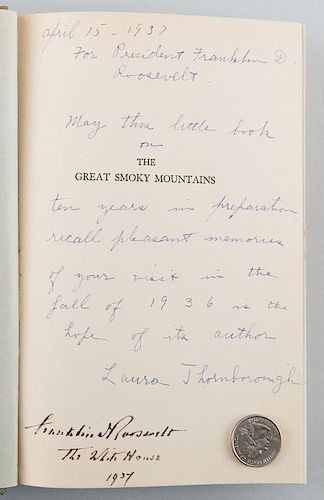 April 15 - 1937
For President Franklin D.
Roosevelt.
May this little book
on
THE
GREAT SMOKY MOUNTAINS
ten years in preparation
recall pleasant memories
of your visit in the
fall of 1936 is the
hope of its author
Laura Thornborough
Franklin D Roosevelt
The White House
1937